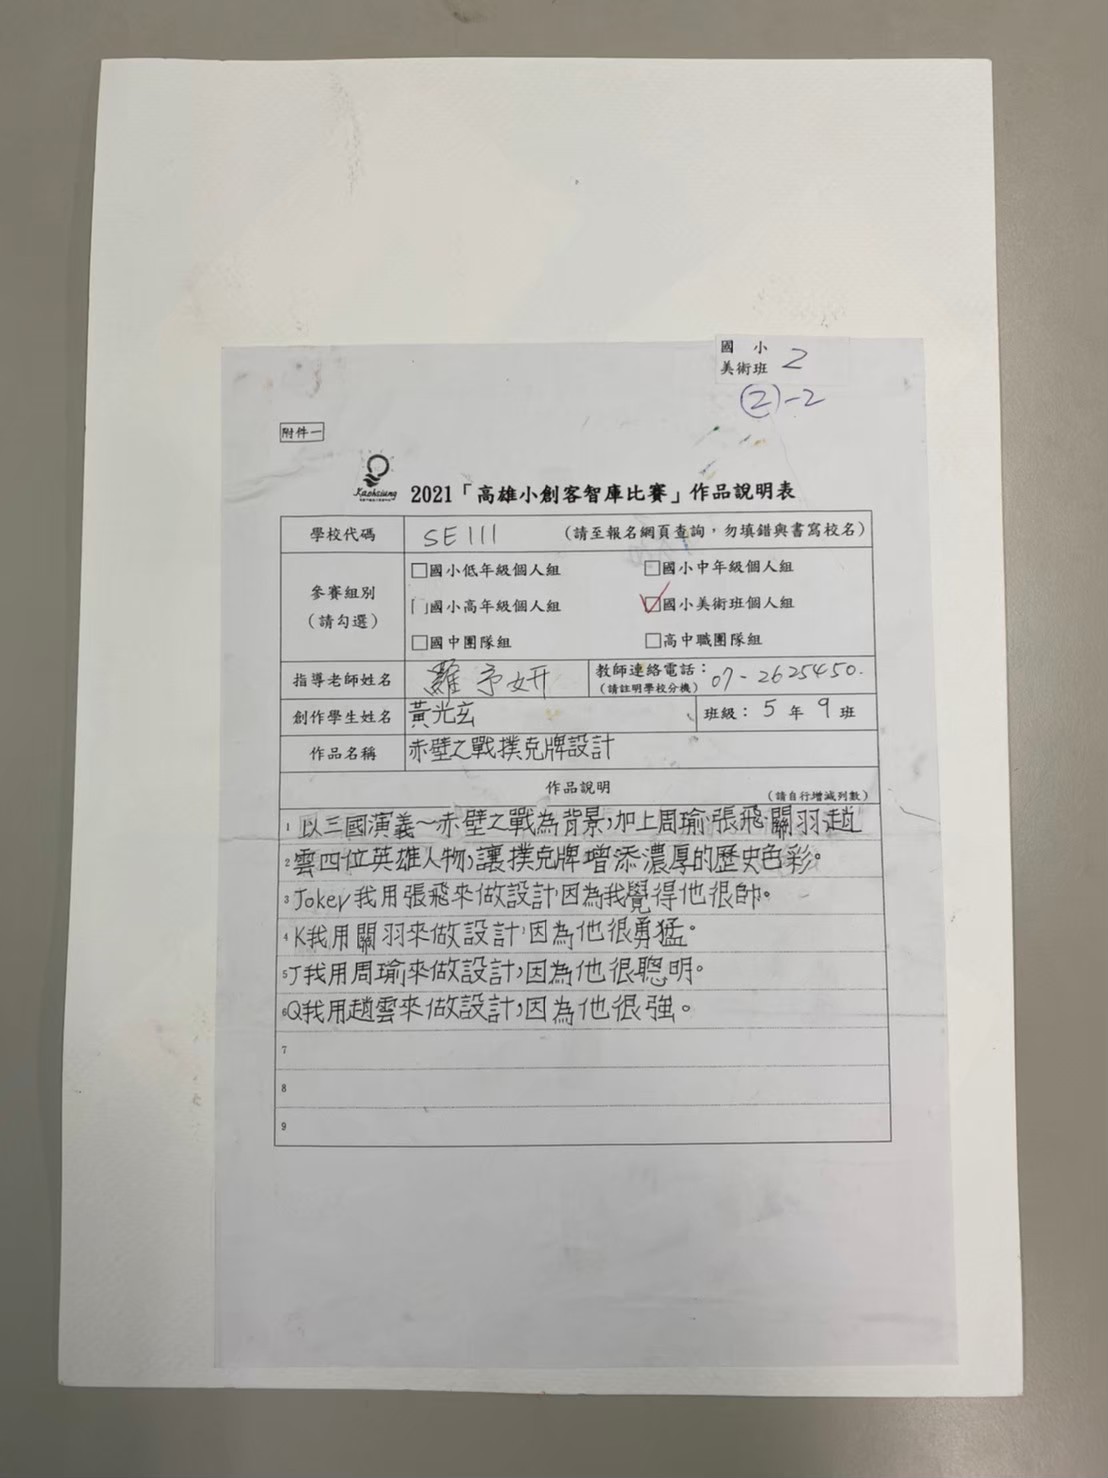 國小
美術班 2
②-2
附件一
Kaohsiung
2021「高雄小創客智庫比賽」作品說明表
學校代碼 SE111 (請至報名網頁查詢，勿填錯與書寫校名)
參賽組別
(請勾選)
□國小低年級個人組 □國小中年級個人組
□國小高年級個人組 ☑國小美術班個人組
□國中團隊組 □高中職團隊組
指導老師姓名 羅予妍 教師連絡電話：07-2625450.
(請註明學校分機)
創作學生姓名 黃光玄 班級：5年9班
作品名稱 赤壁之戰撲克牌設計
作品說明 (請自行增減列數)
1 以三國演義～赤壁之戰為背景,加上周瑜、張飛、關羽、趙
2 雲四位英雄人物,讓撲克牌增添濃厚的歷史色彩。
3 Joker我用張飛來做設計,因為我覺得他很帥。
4 K我用關羽來做設計,因為他很勇猛。
5 J我用周瑜來做設計,因為他很聰明。
6 Q我用趙雲來做設計,因為他很強。
7
8
9